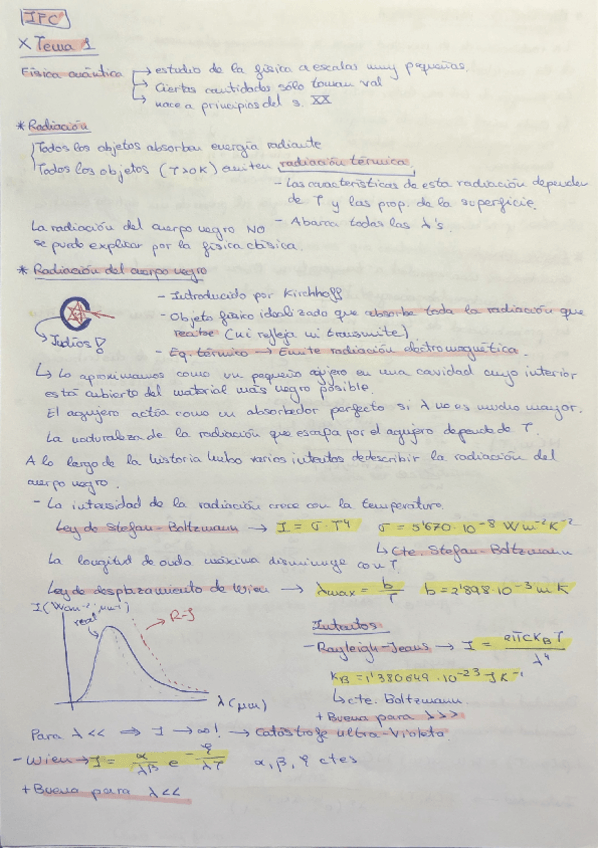 IFC
× Tema 1
Física cuántica → estudio de la física a escalas muy pequeñas.
→ Ciertas cantidades sólo toman val
→ nace a principios del s. XX
* Radiación
Todos los objetos absorben energía radiante
Todos los objetos (T>0K) emiten radiación térmica.
- Las características de esta radiación dependen
de T y las prop. de la superficie.
- Abarca todas las λ's.
La radiación del cuerpo negro NO
se puede explicar por la física clásica.
* Radiación del cuerpo negro
- Introducido por Kirchhoff
- Objeto físico idealizado que absorbe toda la radiación que
recibe (ni refleja ni transmite)
- Eq. térmico → Emite radiación electromagnética.
→ Judíos !
↳ Lo aproximamos como un pequeño agujero en una cavidad cuyo interior
está cubierto del material más negro posible.
El agujero actúa como un absorbedor perfecto si λ no es mucho mayor.
La naturaleza de la radiación que escapa por el agujero depende de T.
A lo largo de la historia hubo varios intentos de describir la radiación del
cuerpo negro.
- La intensidad de la radiación crece con la temperatura.
Ley de Stefan-Boltzmann → I = σ · T⁴ σ = 5'670 · 10⁻⁸ W m⁻² K⁻²
↳ Cte. Stefan-Boltzmann
La longitud de onda máxima disminuye con T.
Ley de desplazamiento de Wien → λmax = b/T b = 2'898 · 10⁻³ m K
I (W cm⁻² μm⁻¹)
real
R-J
λ (μm)
Intentos
- Rayleigh-Jeans → I = 2πcK_BT/λ⁴
k_B = 1'380649 · 10⁻²³ J K⁻¹
↳ cte. Boltzmann.
+ Buena para λ>>
Para λ<< ⇒ I → ∞! → Catástrofe ultra-violeta.
- Wien → I = α/λβ e^(-φ/λT) α, β, φ ctes
+ Buena para λ<<